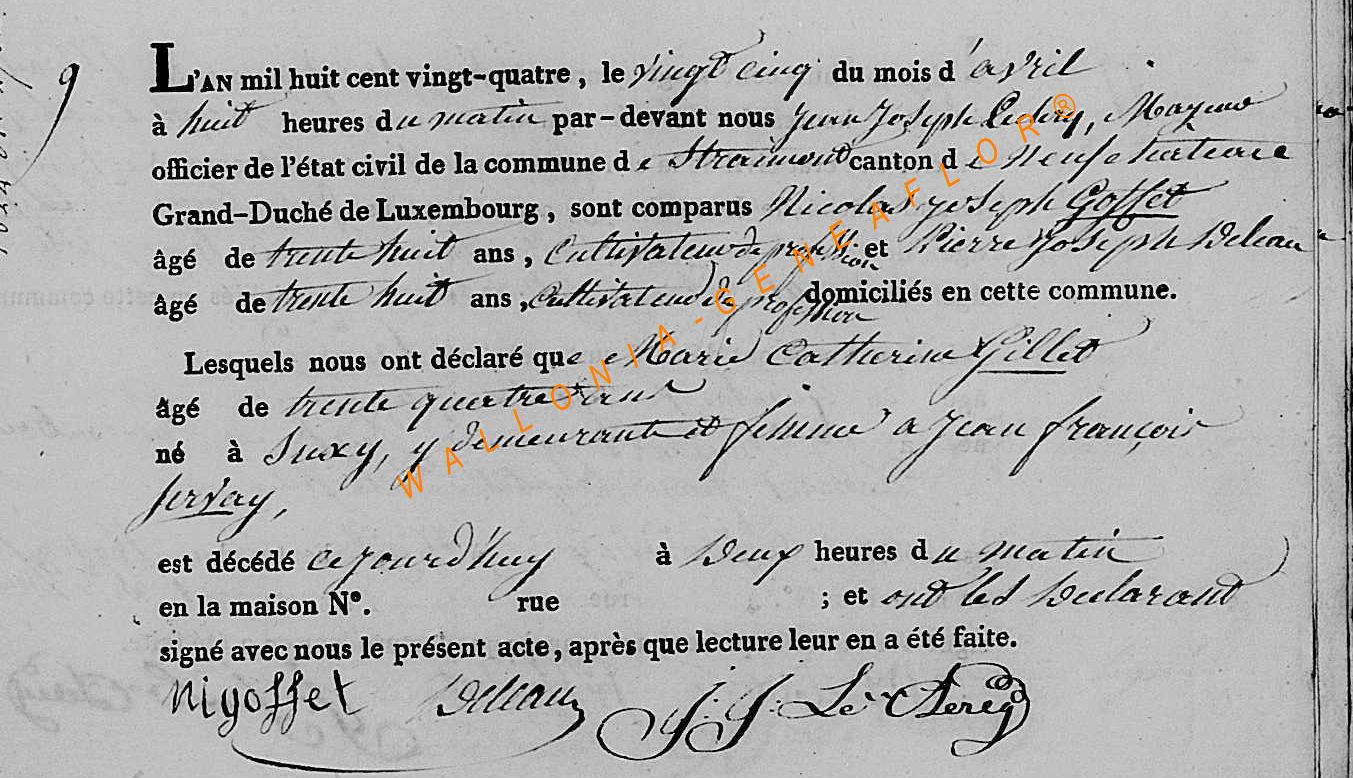 9
L'AN mil huit cent vingt-quatre, le vingt cinq du mois d'avril
à huit heures du matin par-devant nous Jean Joseph
officier de l'état civil de la commune de Straimont canton de Neufchateau
Grand-Duché de Luxembourg, sont comparus Nicolas Joseph Goffet
âgé de trente huit ans, Cultivateur de profession et Pierre Joseph Deleau
âgé de trente huit ans, Cultivateur de profession domiciliés en cette commune.
Lesquels nous ont déclaré que Marie Catherine Gillet
âgé de trente quatre ans
né à Suxy, y demeurante et femme a Jean françois
Jervay,
est décédé cejourd'huy à Deux heures du matin
en la maison N°. rue ; et ont les Declarant
signé avec nous le présent acte, après que lecture leur en a été faite.
Nigoffet Deleau J. J. Le Clerc
WALLONIA-GENEAFLOR®